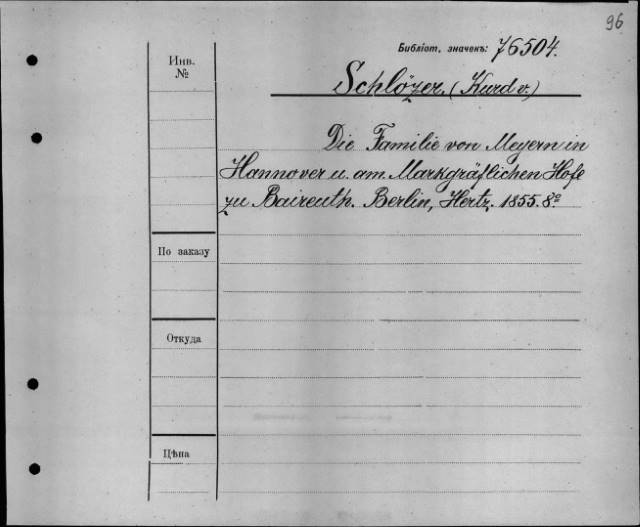 96
Библіот. значекъ: 76504.
Инв.
№
Schlözer. (Kurd v.)
Die Familie von Meyern in
Hannover u. am Markgräflichen Hofe
zu Baireuth. Berlin, Hertz. 1855. 8º
По заказу
Откуда
Цѣна